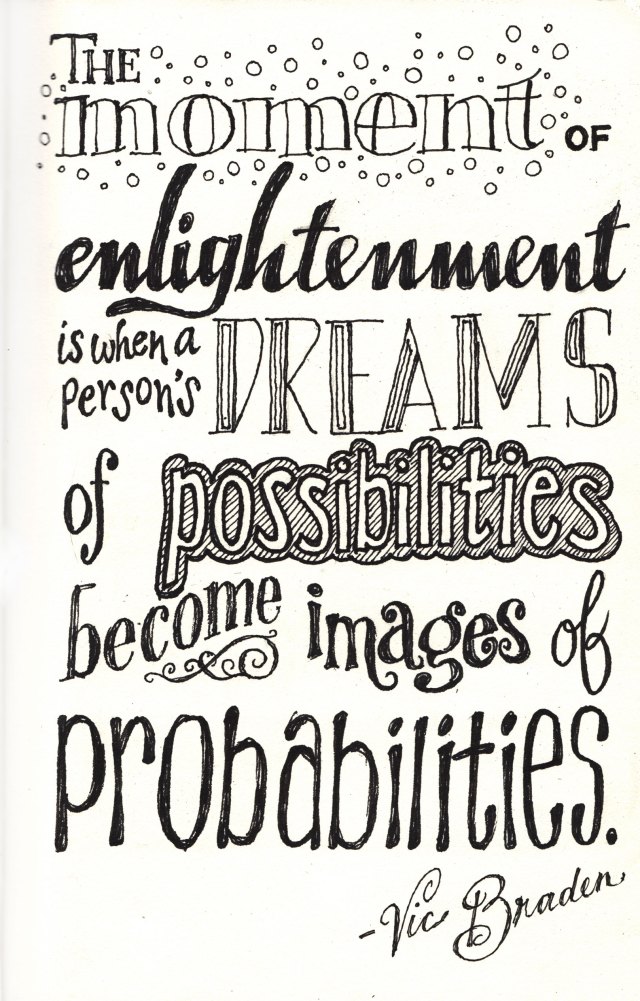 THE
moment OF
enlightenment
is when a
person's DREAMS
of possibilities
become images of
probabilities.
-Vic Braden